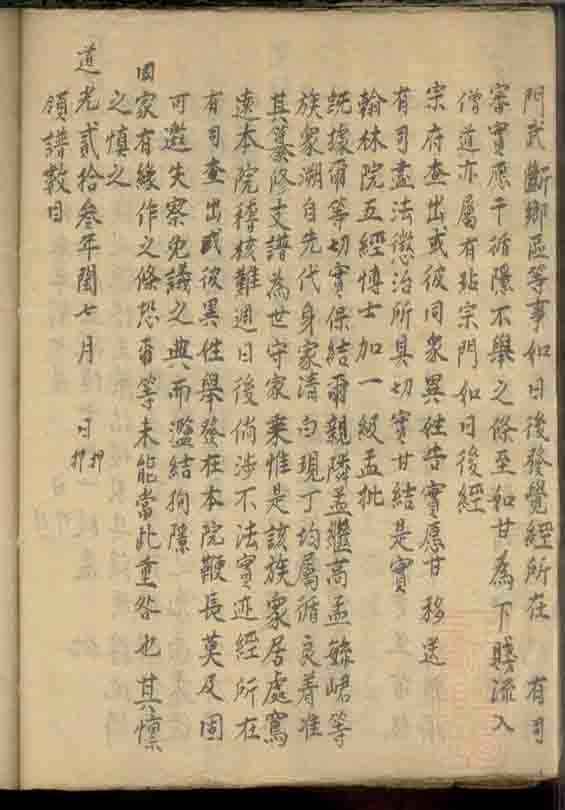 門武斷鄉區等事如日後發覺經所在　有司
審實應干循隱不舉之條至和甘為下賤流入
僧道亦屬有玷宗門如日後經
宗府查出或彼同眾異姓告實愿甘移送
有司盡法懲治所具切實甘結是實
翰林院五經博士加一級孟批
既據爾等切實保結爾親隣孟繼高孟毓峮等
族眾溯自先代身家清白現丁均屬循良着准
其纂修支譜為世守家乘惟是該族眾居處寫
遠本院稽核難週日後倘涉不法實迹經所在
有司查出或彼異姓舉發在本院鞭長莫及固
可邀失察免議之典而濫結狥隱
國家有緣作之條恐爾等未能當此重咎也其懍
之慎之
道光貳拾叁年閏七月　日　押押
領譜數目